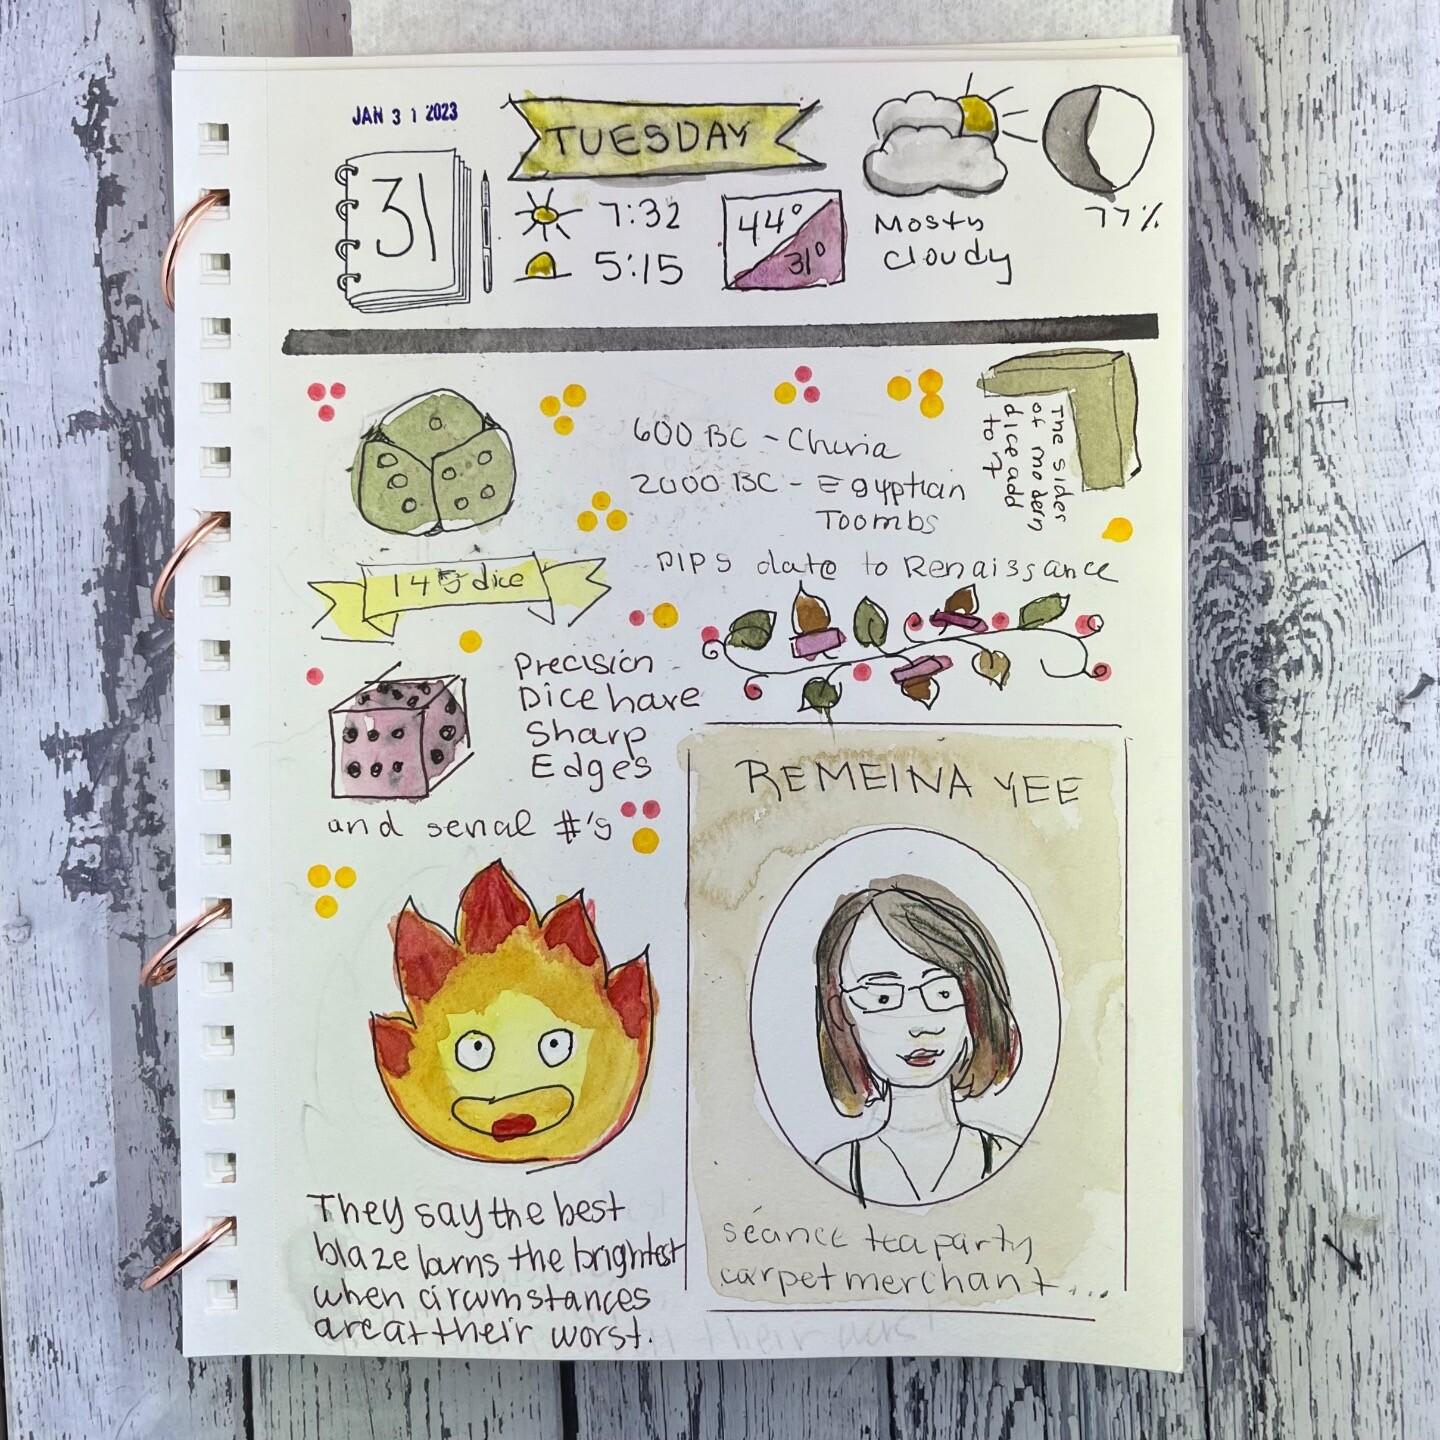 JAN 31 2023
TUESDAY
31
7:32
5:15
44°
31°
Mostly
cloudy
77%
600 BC - China
2000 BC - Egyptian
Toombs
PIPS date to Renaissance
The sides
of modern
dice add
to 7
145 dice
Precision
Dice have
Sharp
Edges
and serial #'s
REMEINA YEE
séance tea party
carpet merchant...
They say the best
blaze burns the brightest
when circumstances
are at their worst.